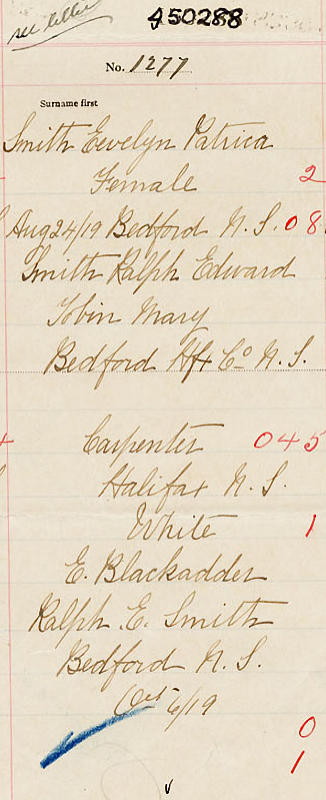 see letter
450288
No. 1277
Surname first
Smith Eevelyn Patrica
Female 2
Aug 24/19 Bedford N. S. 0 8
Smith Ralph Edward
Tobin Mary
Bedford Hfx Co N. S.
Carpenter 045
Halifax N. S.
White 1
E. Blackadder
Ralph E. Smith
Bedford N. S.
Oct 6/19
0
1